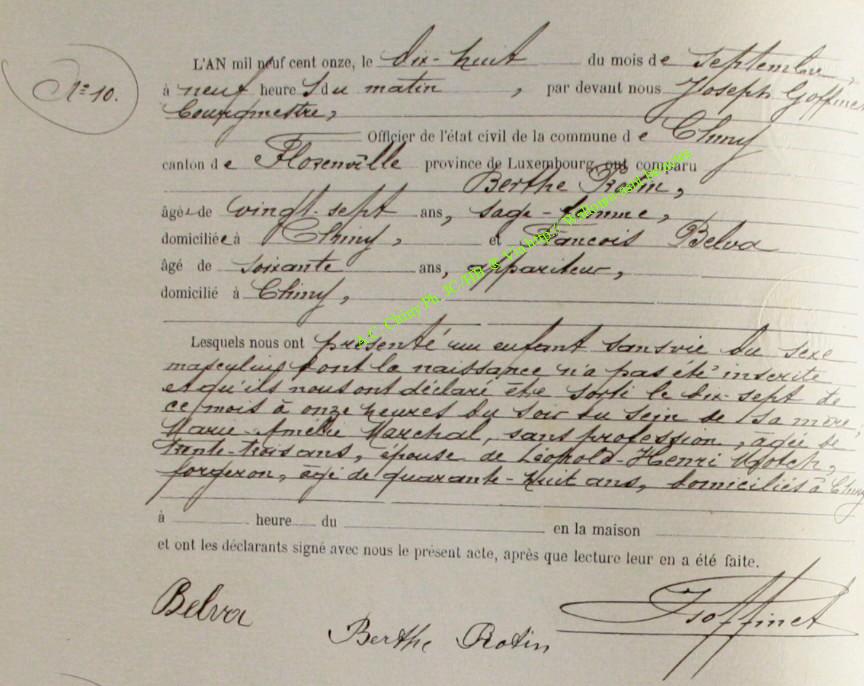 N° 10.
L'AN mil neuf cent onze, le dix-huit du mois de septembre,
à neuf heures du matin, par devant nous Joseph Goffinet
bourgmestre,
Officier de l'état civil de la commune de Chiny
canton de Florenville province de Luxembourg, ont comparu
Berthe Rotin,
âgée de vingt-sept ans, sage-femme,
domiciliée à Chiny, et François Belva
âgé de soixante ans, appariteur,
domicilié à Chiny,
Lesquels nous ont présenté un enfant sans vie du sexe
masculin dont la naissance n'a pas été inscrite
et qu'ils nous ont déclaré être sorti le dix-sept de
ce mois à onze heures du soir du sein de sa mère,
Marie-Amélie Marchal, sans profession, âgée de
trente-trois ans, épouse de Léopold-Henri
forgeron, âgé de quarante-huit ans, domiciliés à Chiny
à heure du en la maison
et ont les déclarants signé avec nous le présent acte, après que lecture leur en a été faite.
Belva
Berthe Rotin
JGoffinet